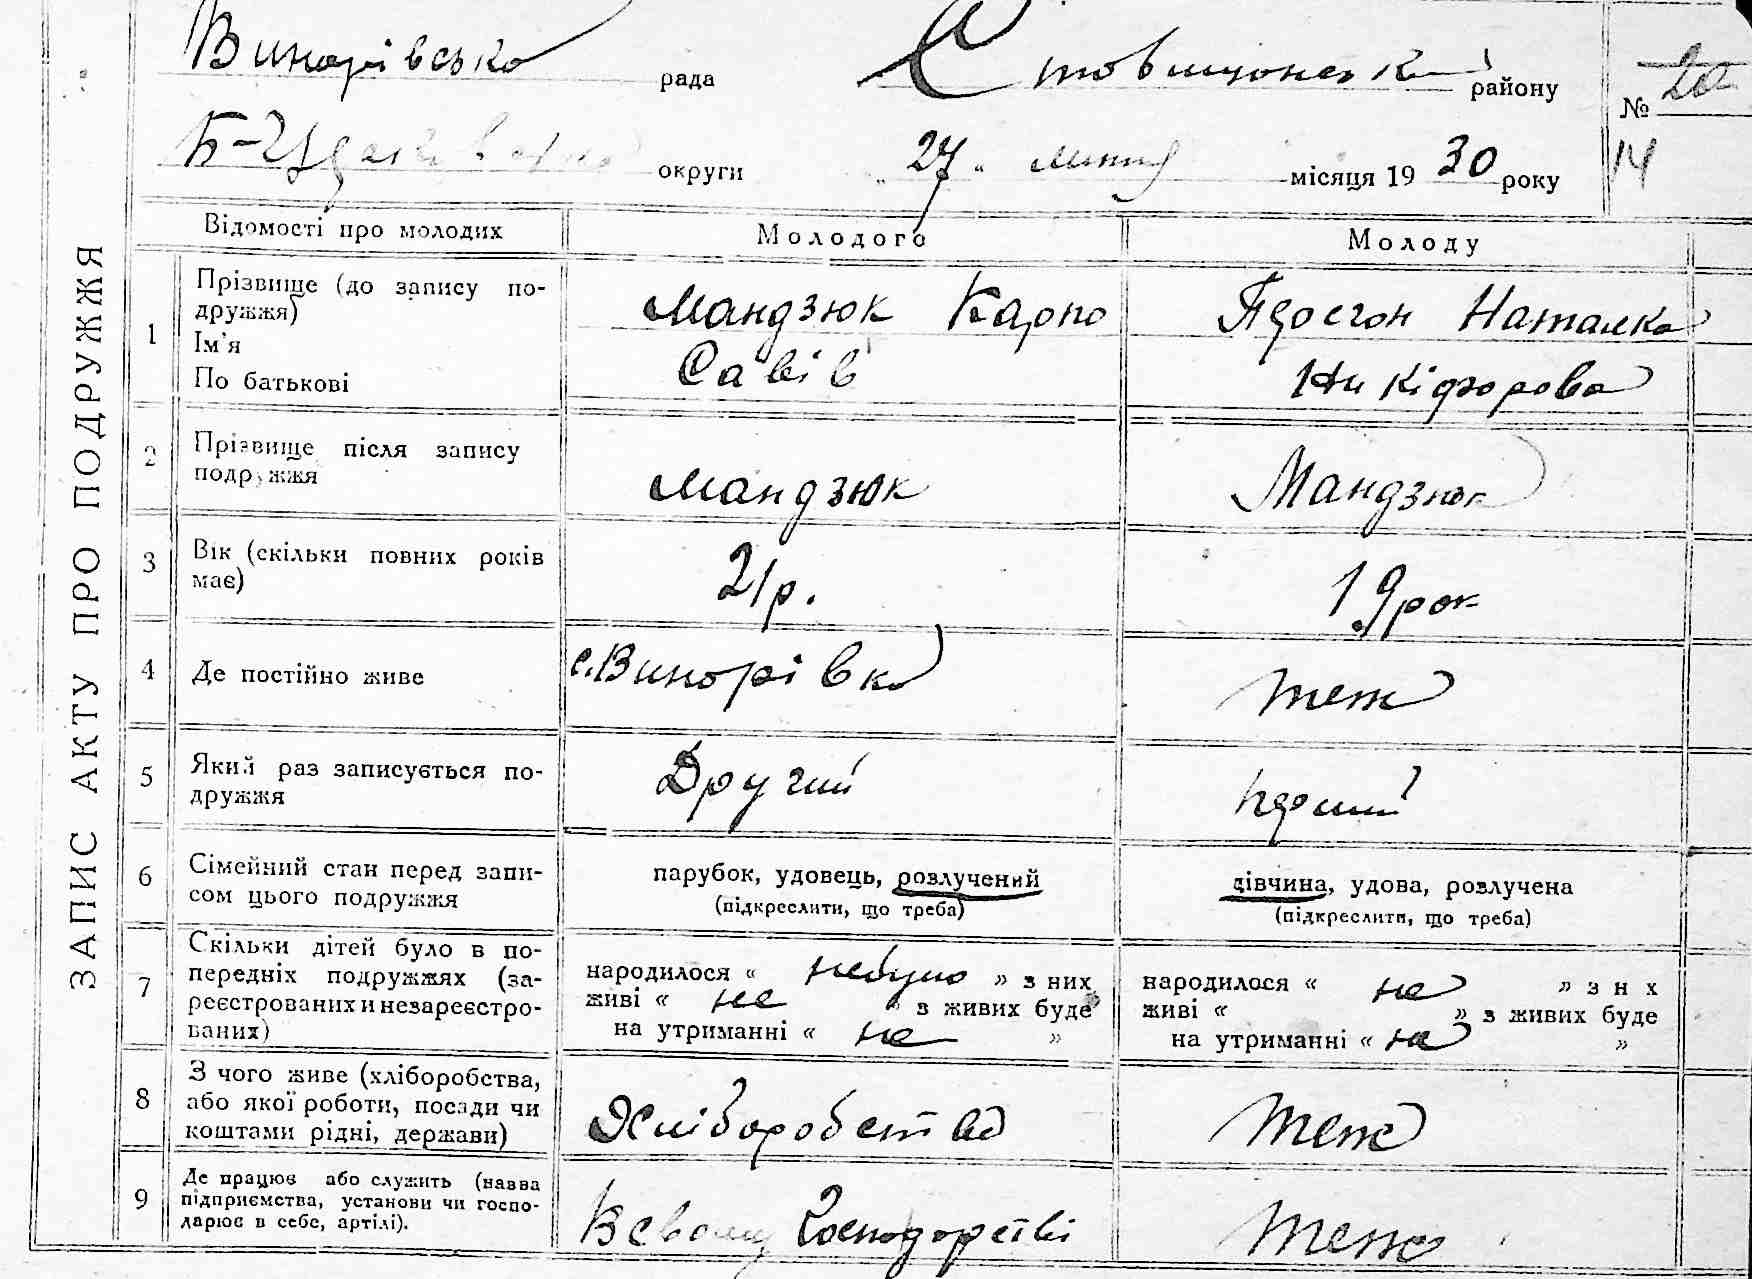 Винарівсько рада Стовпчанськ району № 20
Б-Церківсько округи „27“ лютня місяця 1930 року 14
ЗАПИС АКТУ ПРО ПОДРУЖЖЯ
Відомості про молодих Молодого Молоду
1 Прізвище (до запису подружжя) Ім'я По батькові
Мандзюк Карпо
Савів
Наталка
Никіфорова
2 Прізвище після запису подружжя Мандзюк Мандзюк
3 Вік (скільки повних років має) 21 р. 19 рок
4 Де постійно живе с. Винарівка теж
5 Який раз записується подружжя Другий перший
6 Сімейний стан перед записом цього подружжя
парубок, удовець, розлучений
(підкреслити, що треба)
дівчина, удова, розлучена
(підкреслити, що треба)
7 Скільки дітей було в попередніх подружжях (зареєстрованих и незареєстрованих)
народилося « небуло » з них
живі « не » з живих буде
на утриманні « не »
народилося « не » з них
живі « » з живих буде
на утриманні « не »
8 З чого живе (хліборобства, або якої роботи, посади чи коштами рідні, держави) Хліборобства теж
9 Де працює або служить (назва підприємства, установи чи господарює в себе, артілі). В свому Господарстві теж